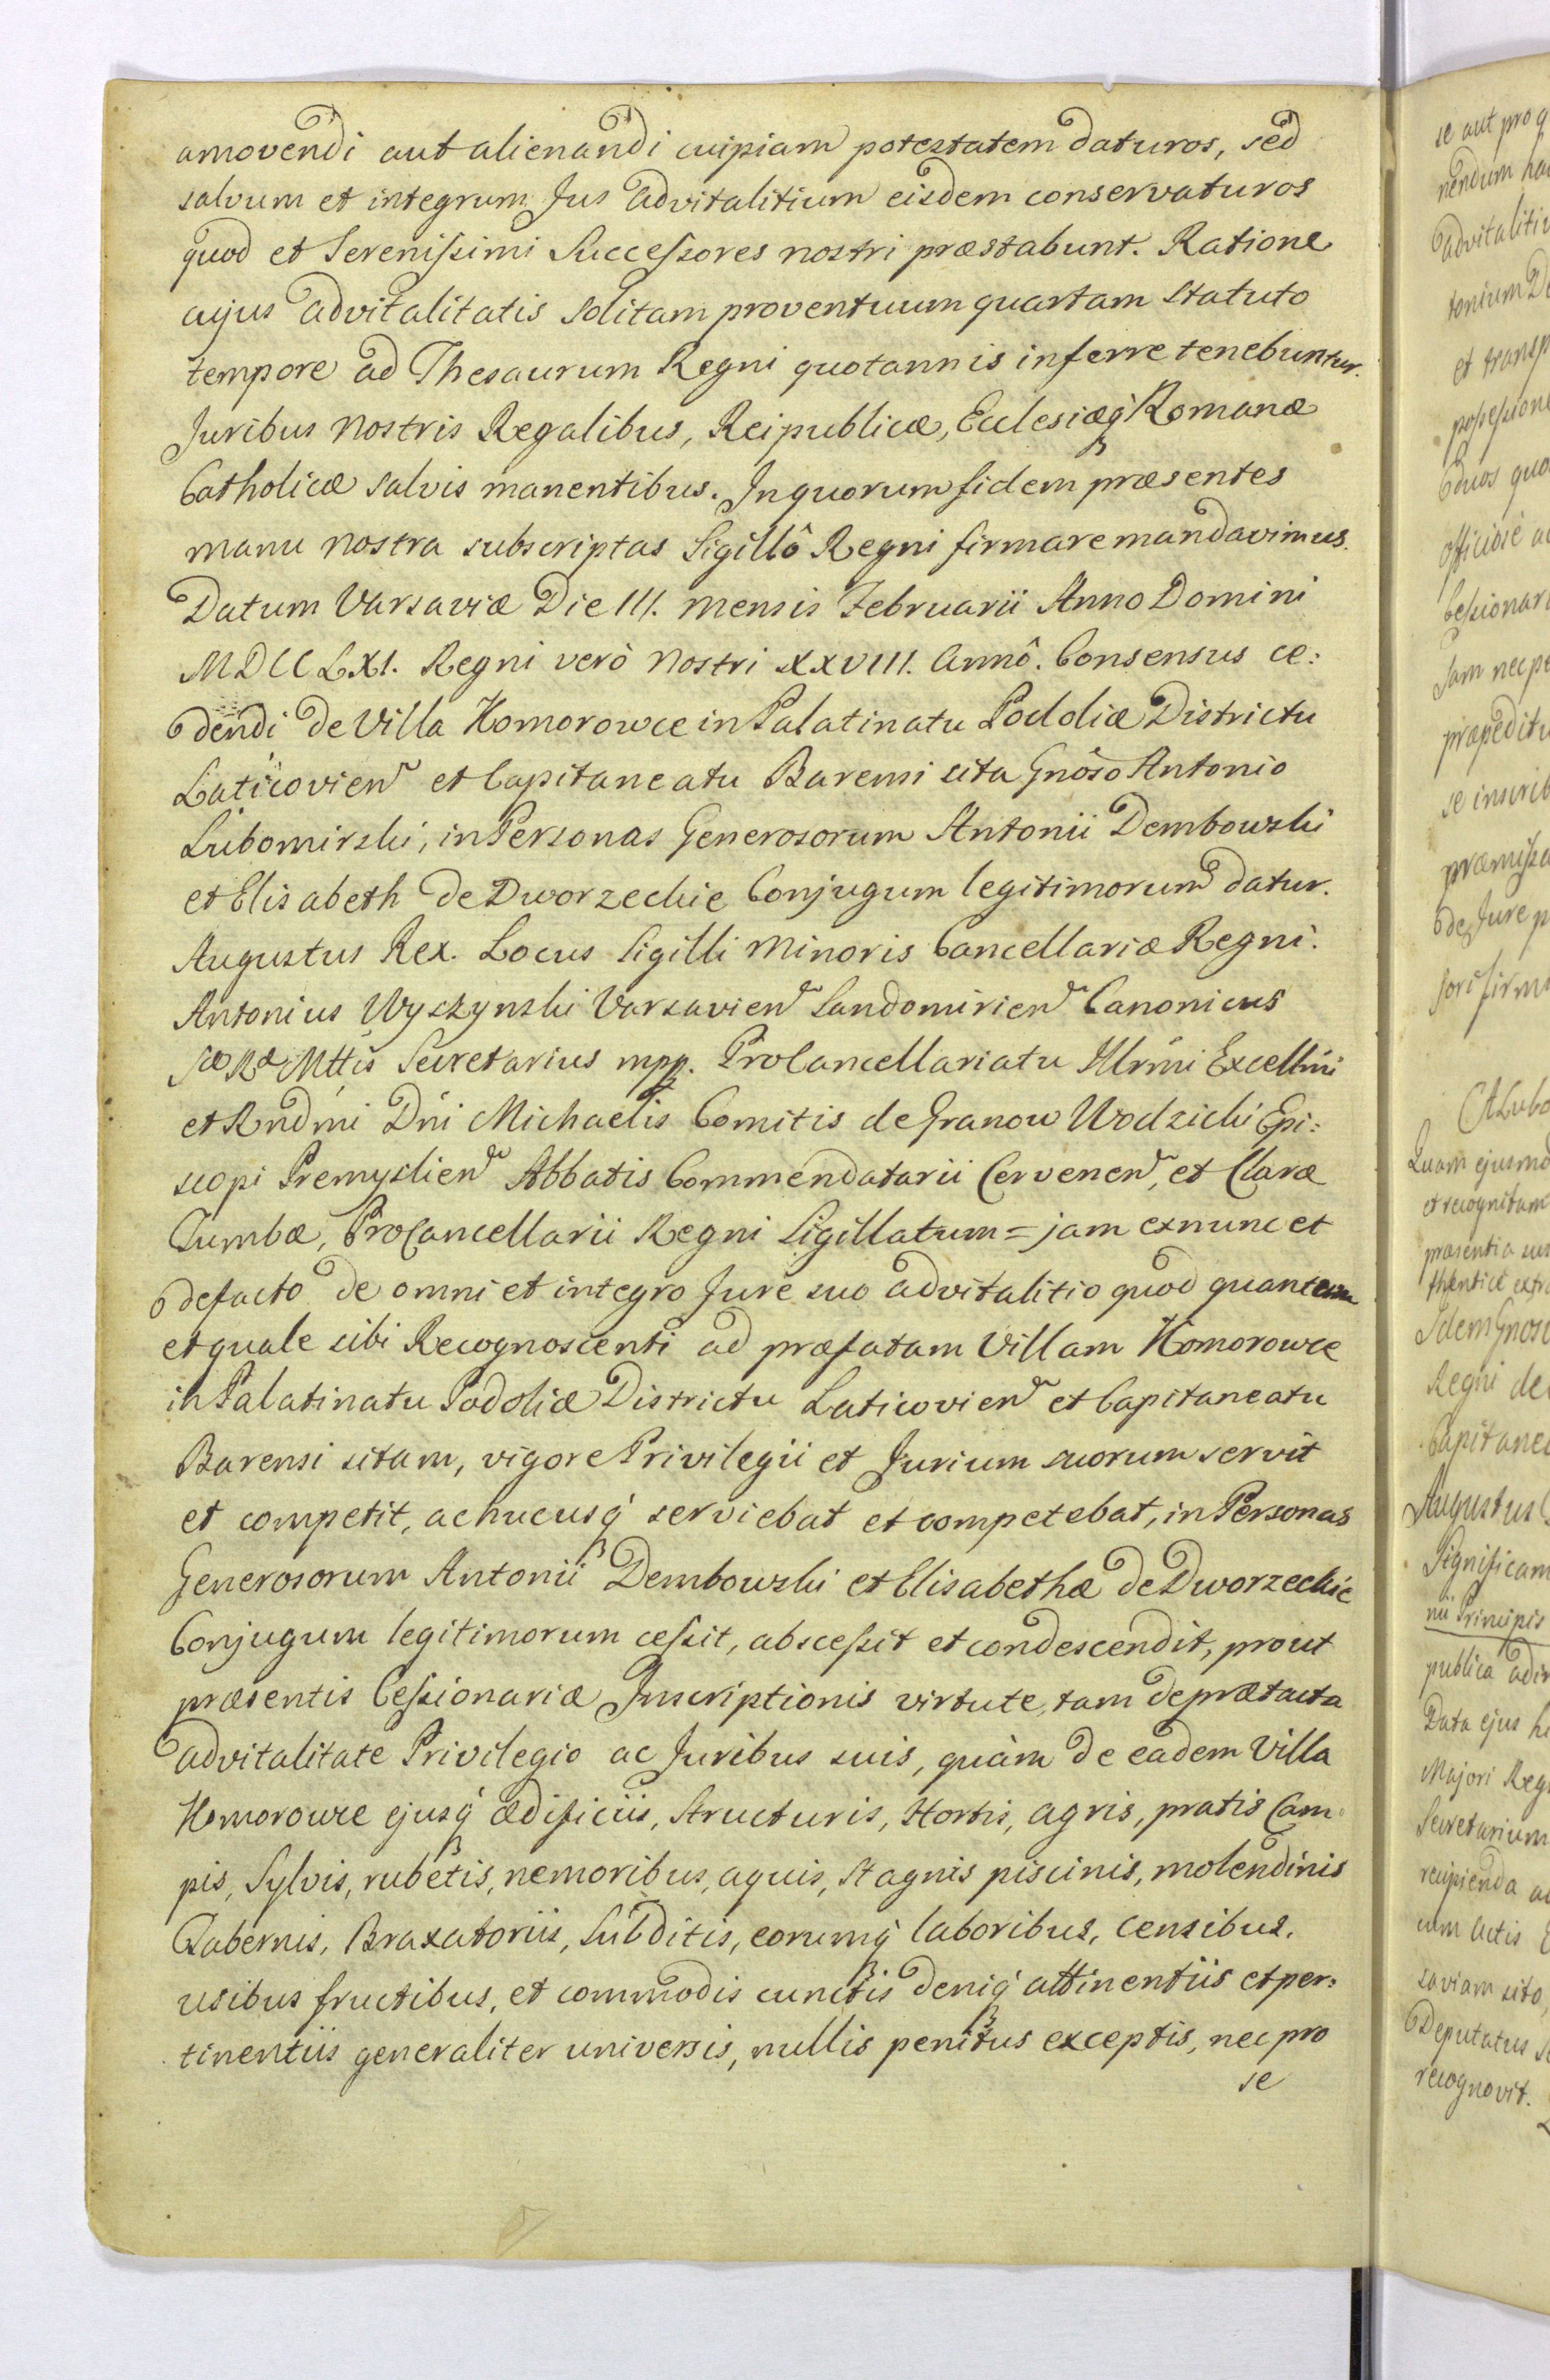 amovendi aut alienandi cuipiam potestatem daturos, sed
salvum et integrum Jus advitalitium eisdem conservaturos
quod et Serenissimi Successores nostri præstabunt. Ratione
cujus advitalitatis solitam proventuum quartam statuto
tempore ad Thesaurum Regni quotannis inferre tenebuntur.
Juribus nostris Regalibus, Reipublicæ, Ecclesiæq́ Romanæ
Catholicæ salvis manentibus. In quorum fidem præsentes
manu nostra subscriptas Sigillô Regni firmare mandavimus.
Datum Varsaviæ Die III. mensis Februarii Anno Domini
MDCCLXI. Regni verò nostri XXVIII. Annô. Consensus ce:
dendi de Villa Komorowce in Palatinatu Podoliæ Districtu
Laticovien et Capitaneatu Barensi sita Gnôso Antonio
Lubomirski, in Personas Generosorum Antonii Dembowski
et Elisabeth de Dworzeckie Conjugum legitimorum datur.
Augustus Rex. Locus Sigilli Minoris Cancellariæ Regni.
Antonius Wyszynski Varsavien Sandomirien Canonicus
Sæ Ræ Mttis Secretarius mpp. ProCancellariatu Illrmi Excellmi
et Rndmi Dni Michaelis Comitis de Granow Wodzicki Epi:
scopi Premyslien Abbatis Commendatarii Cervenen, et Claræ
Tumbæ, ProCancellarii Regni Sigillatum = jam ex nunc et
de facto de omni et integro Jure suo advitalitio quod quantum
et quale sibi Recognoscenti ad præfatam Villam Komorowce
in Palatinatu Podoliæ Districtu Laticovien et Capitaneatu
Barensi sitam, vigore Privilegii et Jurium suorum servit
et competit, ac hucusq́ serviebat et competebat, in Personas
Generosorum Antonii Dembowski et Elisabethæ de Dworzeckie
Conjugum legitimorum cessit, abscessit et condescendit, prout
præsentis Cessionariæ Inscriptionis virtute, tam de prætacta
advitalitate Privilegio ac Juribus suis, quàm de eadem Villa
Komorowce ejusq́ ædificiis, Structuris, Hortis, agris, pratis Cam:
pis, Sylvis, rubetis, nemoribus, aquis, Stagnis piscinis, molendinis
Tabernis, Braxatoriis, Subditis, eorumq́ laboribus, censibus,
usibus fructibus, et commodis cunctis deniq́ attinentiis et per:
tinentiis generaliter universis, nullis penitus exceptis, nec pro
se
se aut pro
advitaliti
et transp
officiosè
se inscrib
Quam ejusmo
et recognitam
Regni de
Capitane
Augustus
Significam
nii Principis
publica
Data ejus
Majori Reg
Secretarium
recipienda
cum Actis
saviam sito,
Deputatus
recognovit.